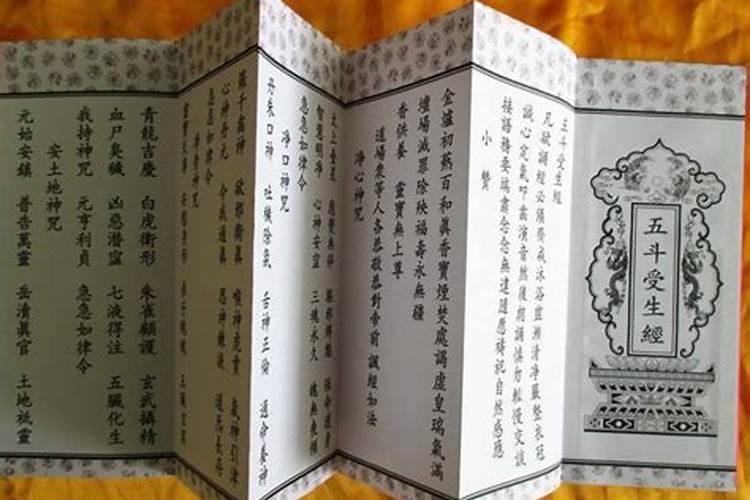 五斗受生經
五斗受生經
凡欲誦經必須齋戒沐浴盥漱清淨嚴整衣冠
誠心定氣叩齒演音然後朗誦慎勿輕慢交談
接語務要端肅念念無違隨應禱祀自然感應
小讚
金爐初爇百和眞香寶煙焚處謁虛皇瑞氣滿
壇場滅罪除殃福壽永無疆
香供養 靈寶無上尊
道場衆等人各恭敬恭對帝前 誦經如法
淨心神咒
太上臺星 應變無停 驅邪縛魅 保命護身
智慧明淨 心神安寍 三魂永久 魄無喪傾
急急如律令
淨口神咒
丹朱口神 吐穢除氛 舌神正倫 通命養神
羅千齒神 欲邪衛眞 喉神虎賁 氣神引津
心神丹元 令我通眞 思神鍊液 道炁長存
急急如律令
淨身神咒
靈寶天尊 安慰身形 弟子魂魄 五臟玄冥
青龍吉慶 白虎衛形 朱雀顧護 玄武攝精
血尸臭穢 凶惡潛窪 七液得注 五臟化生
我持神咒 元亨利貞 急急如律令
安土地神咒
元始安鎮 普告萬靈 岳清眞官 土地祗靈